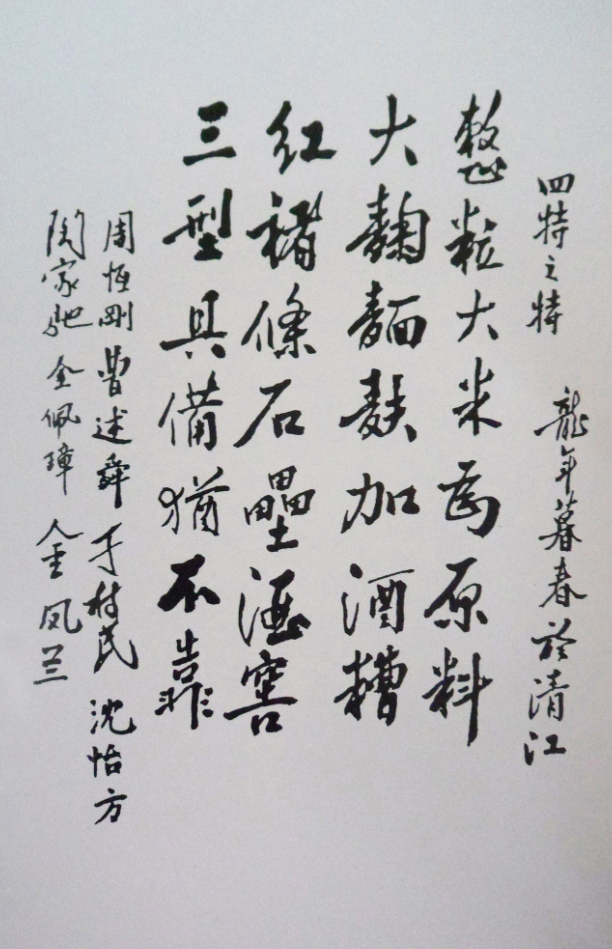 四特之特 龍年暮春於清江
整粒大米为原料
大麯麵麩加酒糟
红褚條石壘酒窖
三型具備猶不靠
周恆剛 曹述舜 于树民 沈怡方
陶家驰 全佩璋 金凤兰